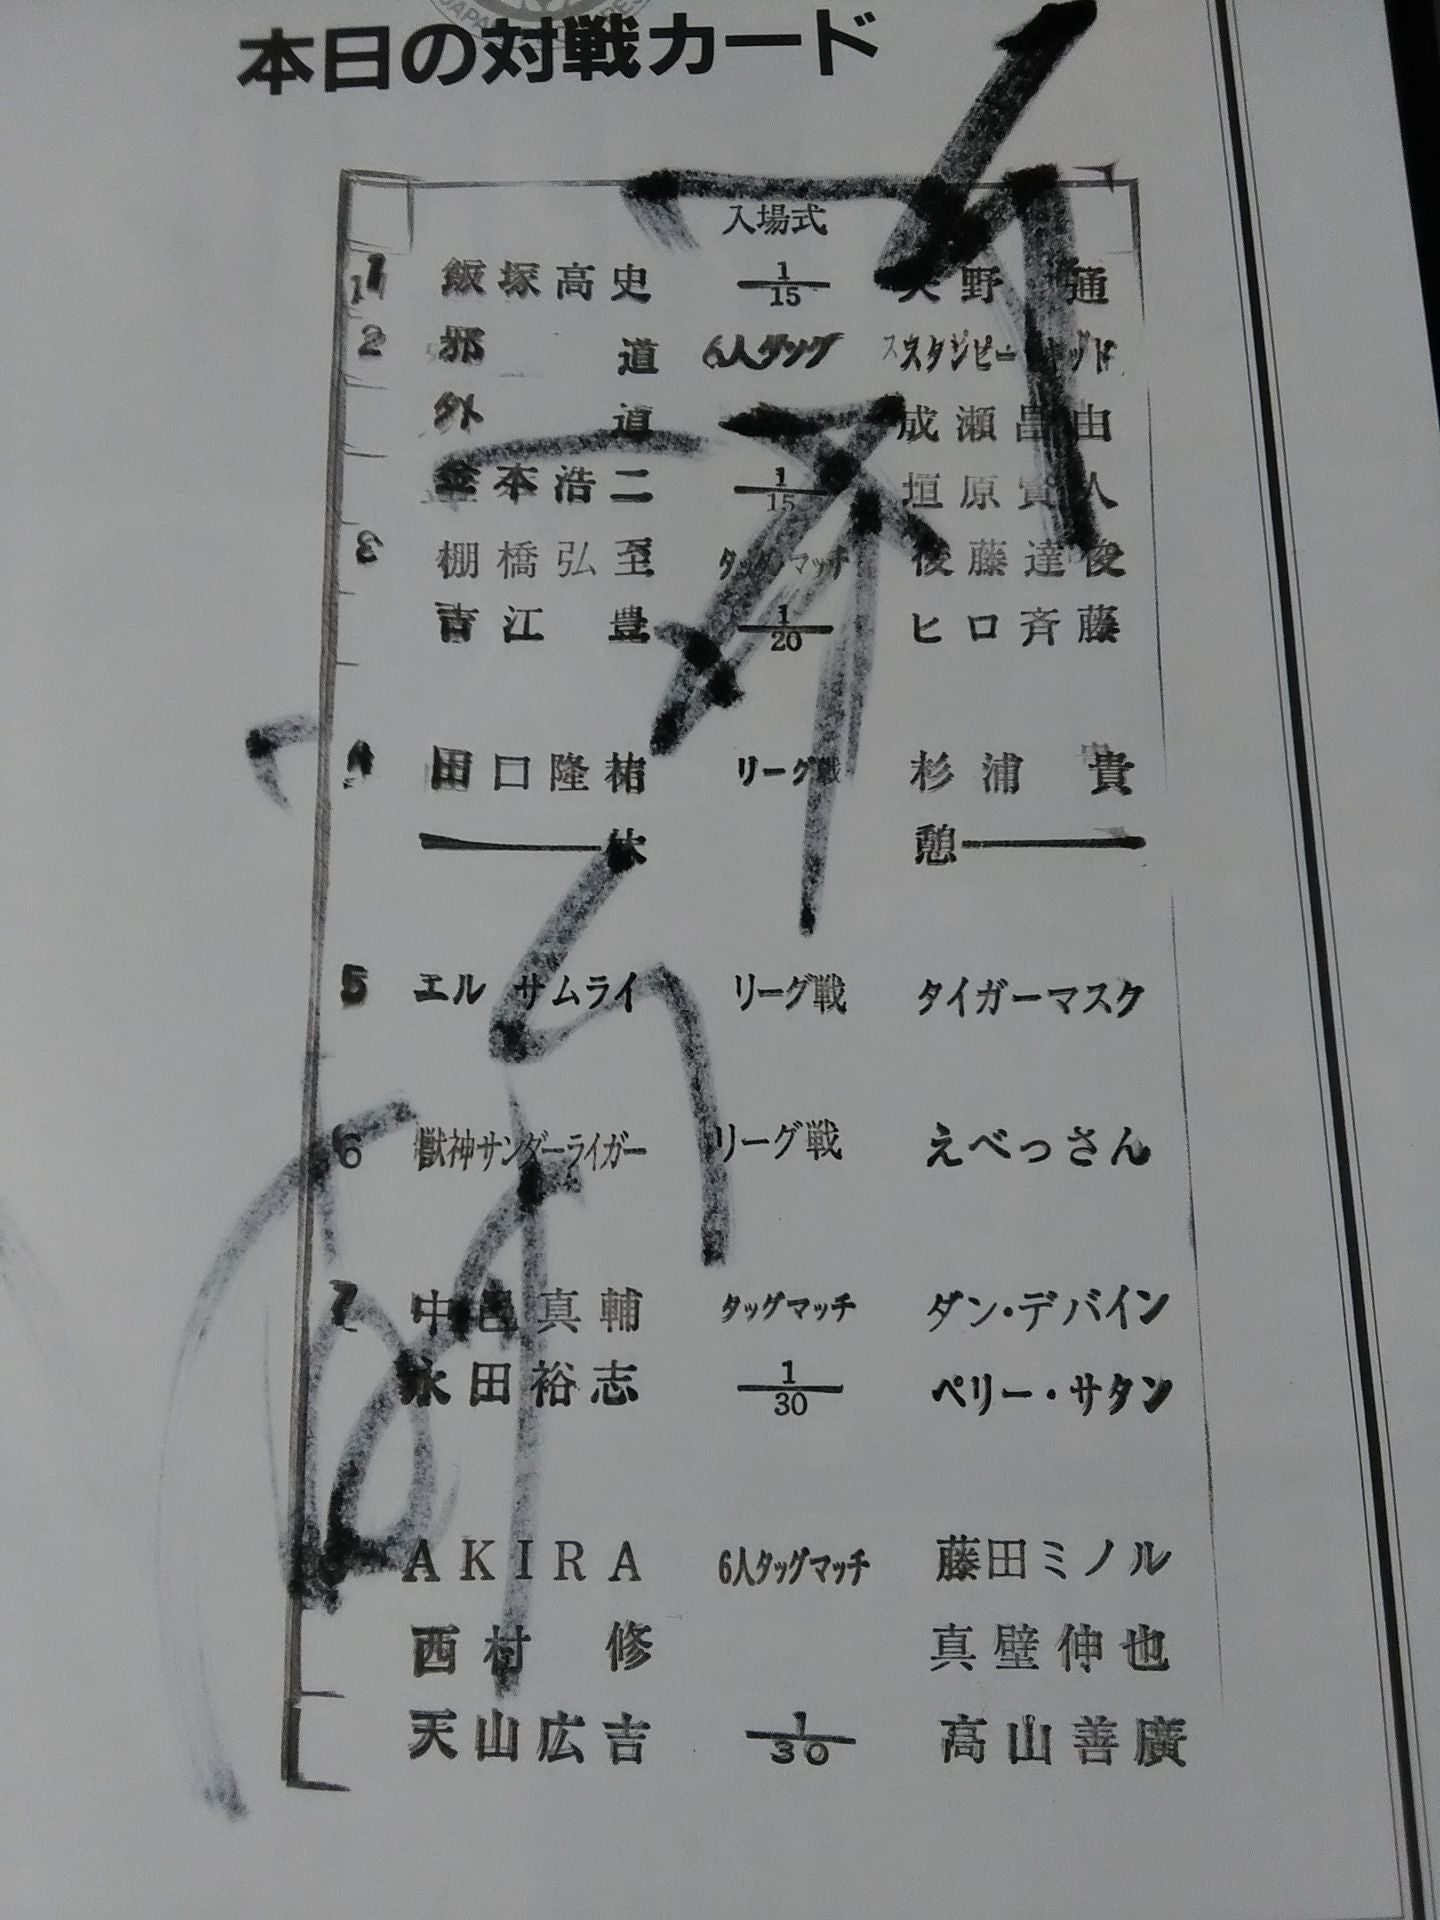 本日の対戦カード
入場式
1 飯塚高史 1/15 矢野 通
2 邪 道 6人タッグ スタンピード・キッド
外 道 成瀬昌由
金本浩二 1/15 垣原賢人
3 棚橋弘至 タッグマッチ 後藤達俊
吉江 豊 1/20 ヒロ斉藤
4 田口隆祐 リーグ戦 杉浦 貴
休 憩
5 エル サムライ リーグ戦 タイガーマスク
6 獣神サンダーライガー リーグ戦 えべっさん
7 中邑真輔 タッグマッチ ダン・デバイン
永田裕志 1/30 ペリー・サタン
AKIRA 6人タッグマッチ 藤田ミノル
西村 修 真壁伸也
天山広吉 1/30 高山善廣